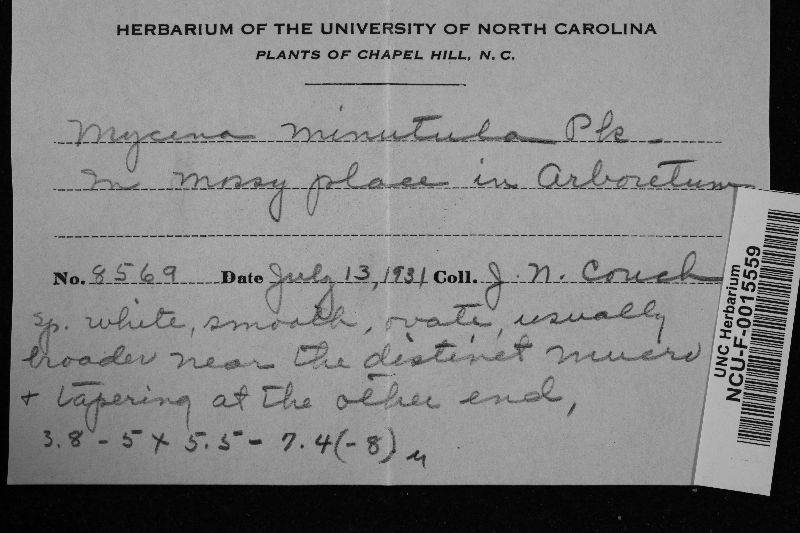 HERBARIUM OF THE UNIVERSITY OF NORTH CAROLINA
PLANTS OF CHAPEL HILL, N. C.
Mycena minutula Pk -
In mossy place in Arboretum
No. 8569 Date July 13, 1931 Coll. J. N. Couch
sp. white, smooth, ovate, usually
broader near the distinct mucro
+ tapering at the other end,
3.8 - 5 x 5.5 - 7.4 (-8) μ
UNC Herbarium
NCU-F-0015559